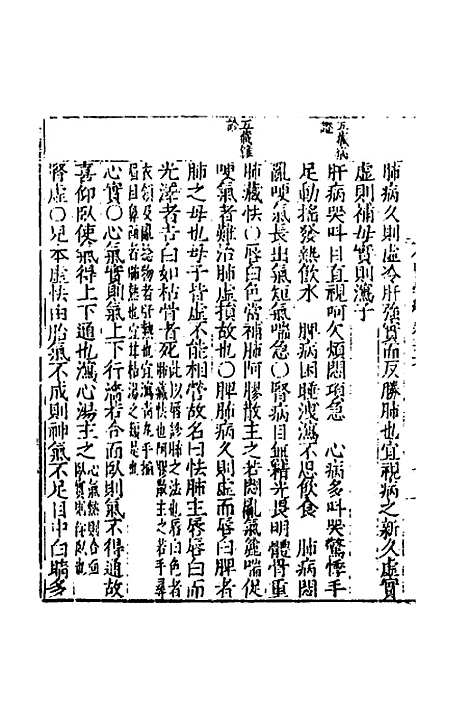 肺病久則虛冷肝強實而反勝肺也宜視病之新久虛實
虛則補母實則瀉子
五藏病
證
肝病哭叫目直視呵欠煩悶項急　心病多叫哭驚悸手
足動搖發熱飲水　脾病困睡洩瀉不思飲食　肺病悶
亂哽氣長出氣短氣喘急〇腎病目無精光畏明體骨重
五藏雜
肺藏怯〇唇白色當補肺阿膠散主之若悶亂氣麄喘促
哽氣者難治肺虛損故也〇脾肺病久則虛而唇白脾者
肺之母也母子皆虛不能相營故名曰怯肺主唇唇白而
光澤者吉白如枯骨者死此以唇診肺之法也唇白色者
肺藏怯也阿膠散主之若手尋
衣領及亂捻物者肝熱也宜瀉青丸手掐
心實〇心氣實則氣上下行濇若合面臥則氣不得通故
喜仰臥使氣得上下通也瀉心湯主之心氣熱則合面
臥實則仰臥也
腎虛〇兒本虛怯由胎氣不成則神氣不足目中白睛多